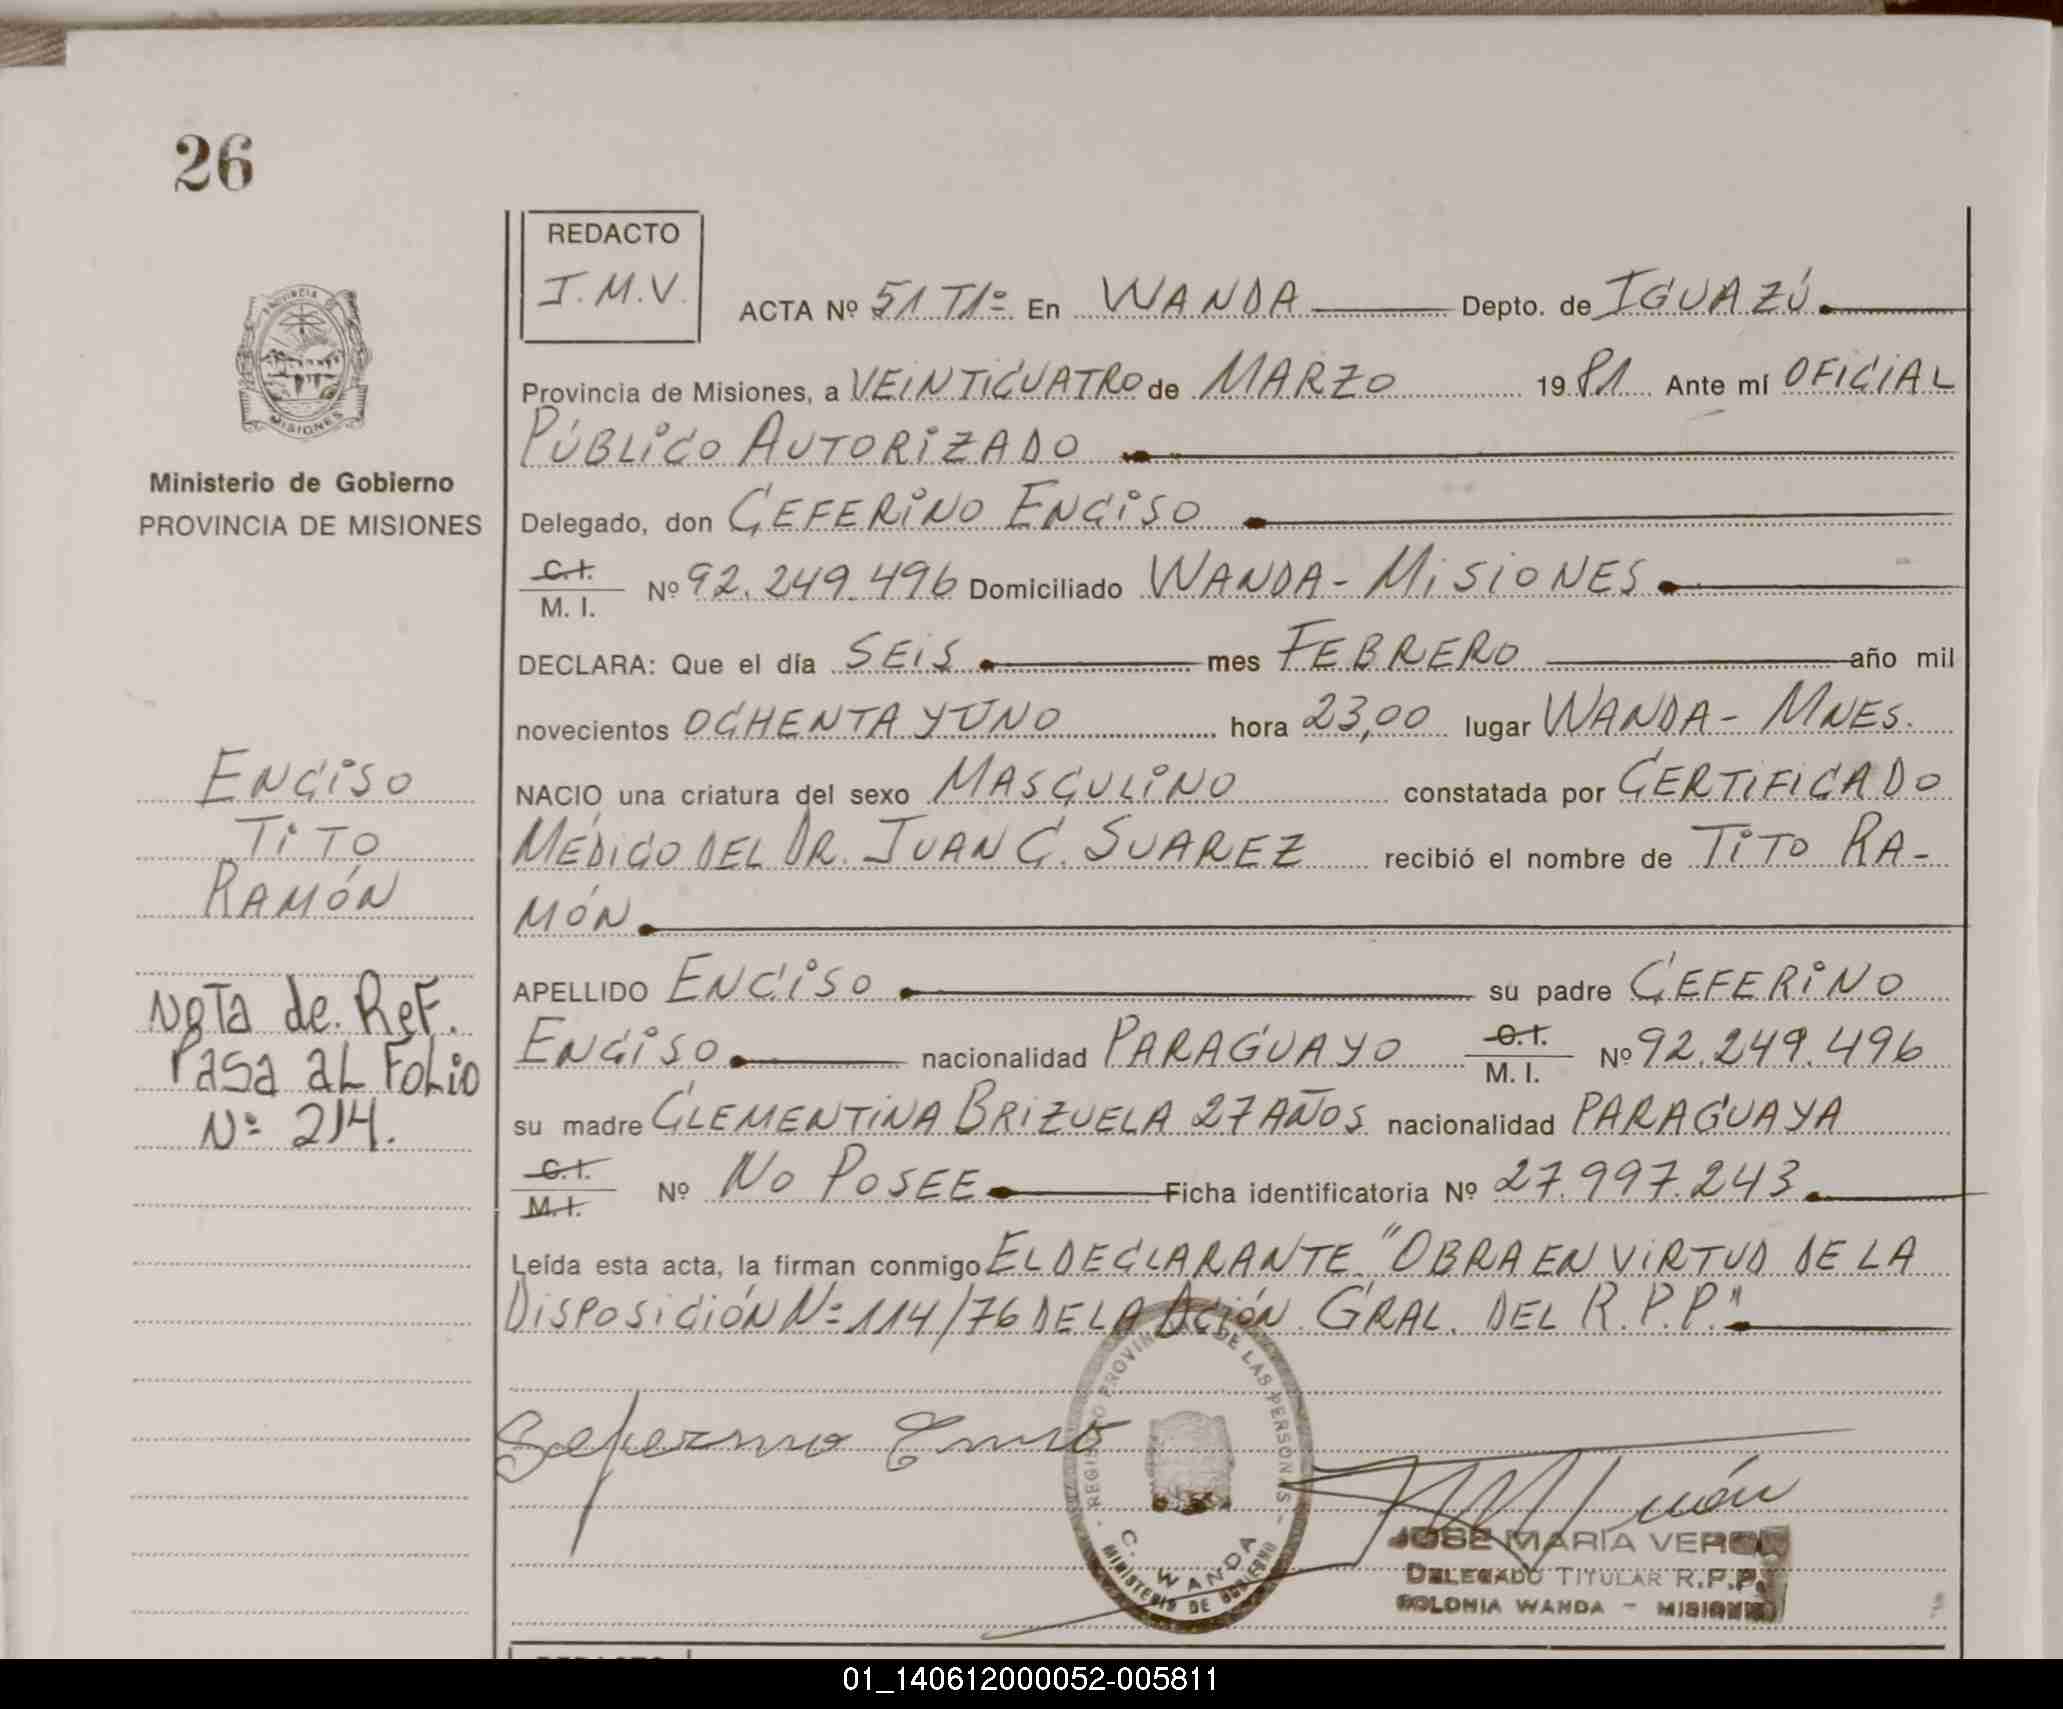 26
REDACTO
J.M.V.
ACTA Nº 51 T1º En WANDA Depto. de IGUAZÚ.
Provincia de Misiones, a VEINTICUATRO de MARZO 1981 Ante mí OFICIAL
PÚBLICO AUTORIZADO
Delegado, don CEFERINO ENCISO
C.I.
M. I. Nº 92.249.496 Domiciliado WANDA - MISIONES.
DECLARA: Que el día SEIS. mes FEBRERO año mil
novecientos OCHENTA Y UNO hora 23,00 lugar WANDA - MNES.
NACIO una criatura del sexo MASCULINO constatada por CERTIFICADO
MÉDICO DEL DR. JUAN C. SUAREZ recibió el nombre de TITO RA-
MÓN.
APELLIDO ENCISO su padre CEFERINO
ENCISO. nacionalidad PARAGUAYO C.I.
M. I. Nº 92.249.496
su madre CLEMENTINA BRIZUELA 27 AÑOS nacionalidad PARAGUAYA
C.I.
M.I. Nº NO POSEE. Ficha identificatoria Nº 27.997.243.
Leída esta acta, la firman conmigo EL DECLARANTE "OBRA EN VIRTUD DE LA
DISPOSICIÓN Nº 114/76 DE LA DCIÓN GRAL. DEL R.P.P."
PROVINCIA
MISIONES
Ministerio de Gobierno
PROVINCIA DE MISIONES
ENCISO
TITO
RAMÓN
NOTA de. ReF.
Pasa aL FoLio
Nº 214.
Seferino Enciso
REGISTRO PROVINCIAL DE LAS PERSONAS
C. WANDA
MINISTERIO DE GOBIERNO
JOSE MARIA VERON
DELEGADO TITULAR R.P.P.
COLONIA WANDA - MISIONES
REDACTO
01_140612000052-005811